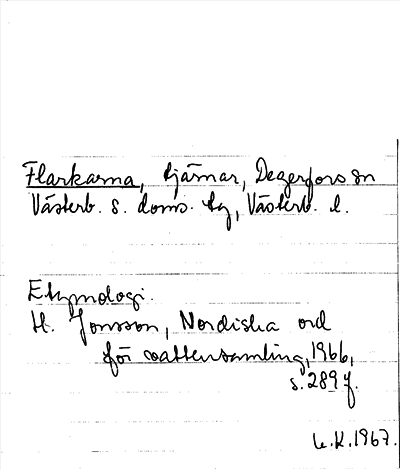 Flarkarna, tjärnar, Degerfors sn
Västerb. s. doms. tg, Västerb. l.
Etymologi.
H. Jonsson, Nordiska ord
för vattensamling, 1966,
s. 289 f.
L.K. 1967.